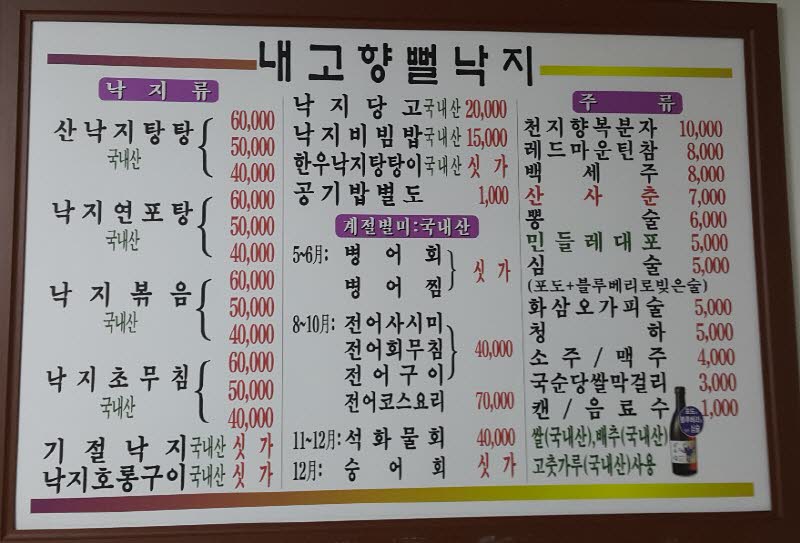 내고향뻘낙지
낙지류
산낙지탕탕 60,000
국내산 50,000
40,000
낙지연포탕 60,000
국내산 50,000
40,000
낙지볶음 60,000
국내산 50,000
40,000
낙지초무침 60,000
국내산 50,000
40,000
기절낙지 국내산 싯가
낙지호롱구이 국내산 싯가
낙지당고 국내산 20,000
낙지비빔밥 국내산 15,000
한우낙지탕탕이 국내산 싯가
공기밥별도 1,000
계절별미:국내산
5~6月: 병어회
병어찜 싯가
8~10月: 전어사시미
전어회무침 40,000
전어구이
전어코스요리 70,000
11~12月: 석화물회 40,000
12月: 숭어회 싯가
주류
천지향복분자 10,000
레드마운틴참 8,000
백세주 8,000
산사춘 7,000
뽕술 6,000
민들레대포 5,000
심술 5,000
(포도+블루베리로빚은술)
화삼오가피술 5,000
청하 5,000
소주/맥주 4,000
국순당쌀막걸리 3,000
캔/음료수 1,000
쌀(국내산),배추(국내산)
고춧가루(국내산)사용